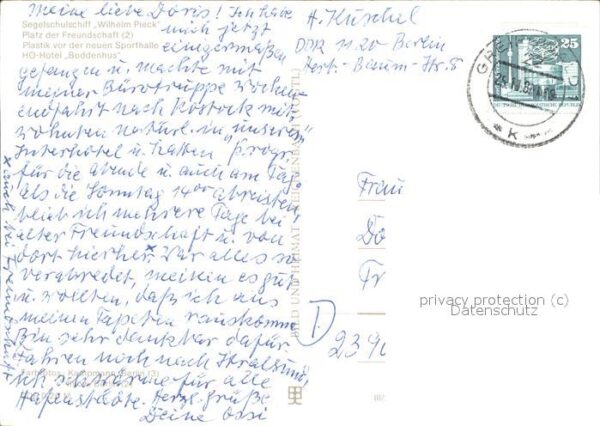 Meine liebe Doris! Ich habe
mich jetzt
einigermaßen
Segelschulschiff „Wilhelm Pieck"
Platz der Freundschaft (2)
Plastik vor der neuen Sporthalle
HO-Hotel „Boddenhus"
gefangen u. machte mit
meiner Bürotruppe Wochen-
endfahrt nach Rostock mit,
wohnten natürl. in „unserem"
Interhotel u. hatten „Progr."
für die Abende u. auch am Tag
Als die Sonntag 14⁰⁰ abreisten,
blieb ich mehrere Tage bei
alter Freundschaft u. von
dort hierher. x War alles so
verabredet, meinen es gut
u. wollten, daß ich aus
meinen Tapeten rauskomme
Bin sehr dankbar dafür
Fahren noch nach Stralsund,
Ich schwärme für alle
Hafenstädte. Herzl. Grüße
Deine Ossi
x auch bei Freundschaft x
H. Küschel
DDR 1120 Berlin
Herb.-Baum-Str. 8
25
Frau
Do
Fr
D
2390
BILD UND HEIMAT REICHENBACH (VOGTL)
privacy protection (c)
Datenschutz